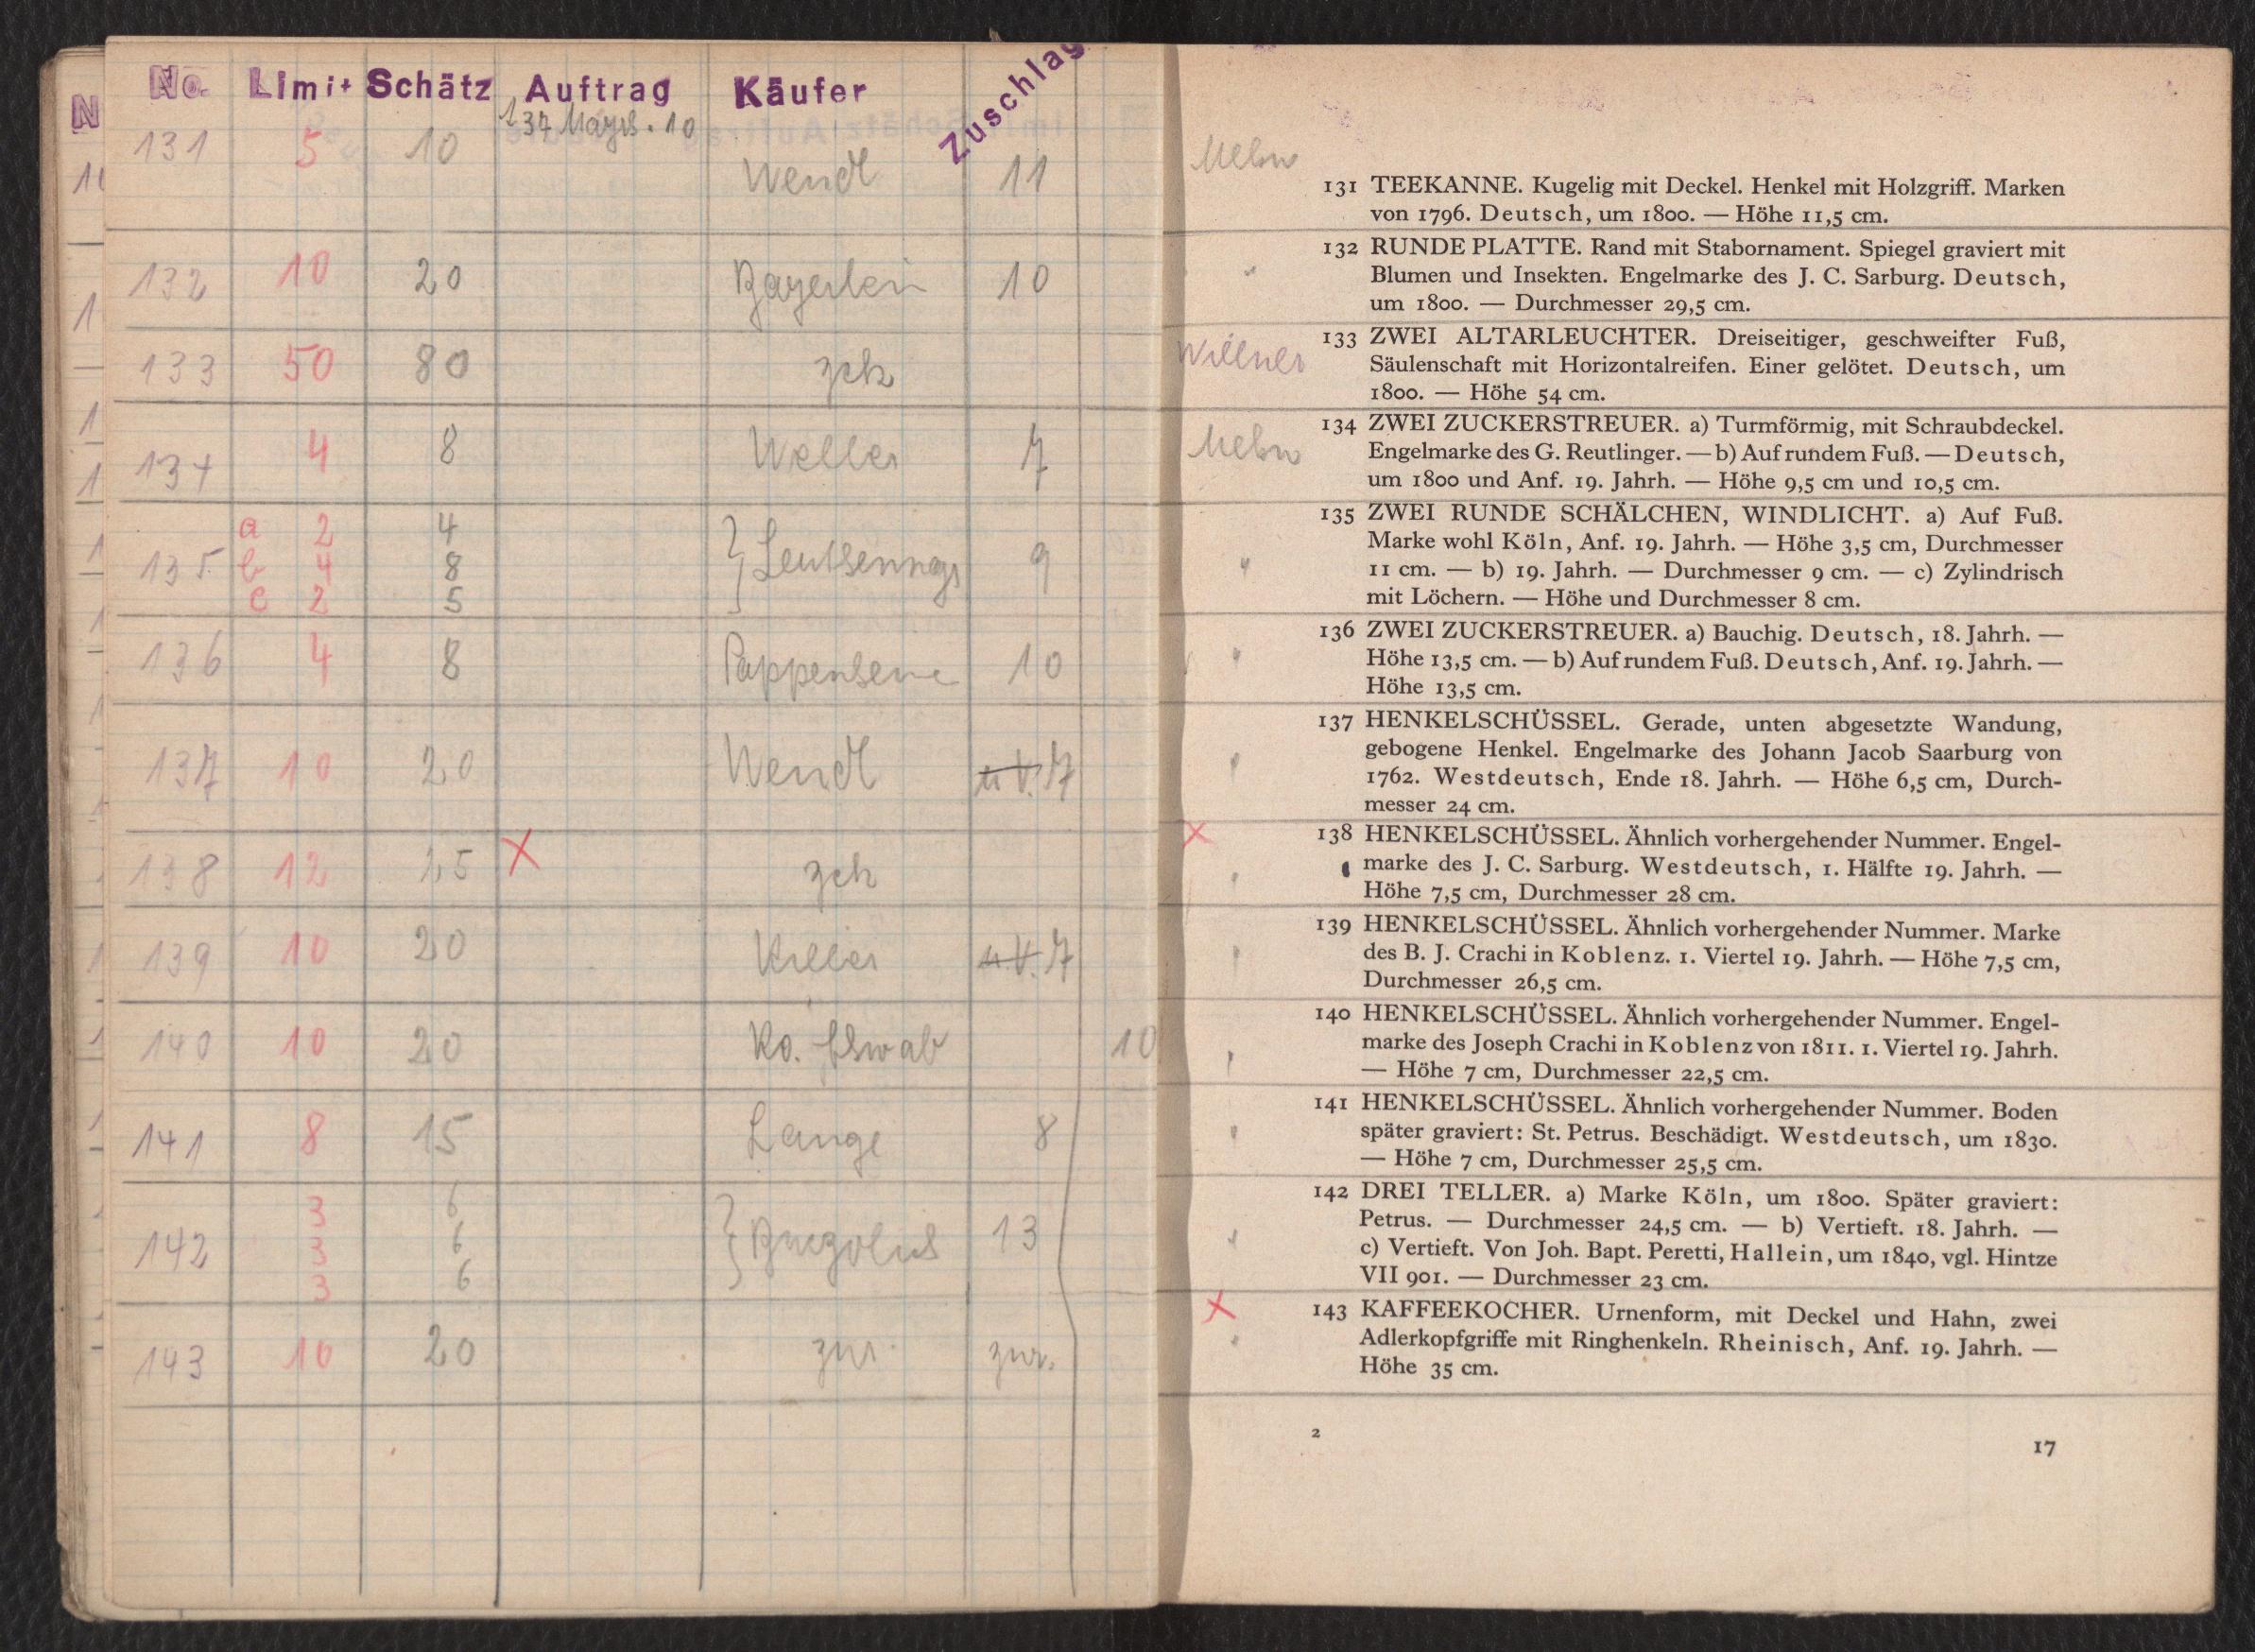 No. Limit Schätz Auftrag Käufer Zuschlag
137 Mayr. 10
131 5 10 Wendl 11
132 10 20 Bayerlein 10
133 50 80 zck
134 4 8 Weller 7
a 2 4
135 b 4 8 9
c 2 5
136 4 8 10
137 10 20 Wendl u.V. 7
138 12 25 X zck
139 10 20 u.V. 7
140 10 20 10
141 8 15 Lange 8
3 6
142 3 6 13
3 6
143 10 20 zur. zur.
N
Willner
131 TEEKANNE. Kugelig mit Deckel. Henkel mit Holzgriff. Marken
von 1796. Deutsch, um 1800. — Höhe 11,5 cm.
132 RUNDE PLATTE. Rand mit Stabornament. Spiegel graviert mit
Blumen und Insekten. Engelmarke des J. C. Sarburg. Deutsch,
um 1800. — Durchmesser 29,5 cm.
133 ZWEI ALTARLEUCHTER. Dreiseitiger, geschweifter Fuß,
Säulenschaft mit Horizontalreifen. Einer gelötet. Deutsch, um
1800. — Höhe 54 cm.
134 ZWEI ZUCKERSTREUER. a) Turmförmig, mit Schraubdeckel.
Engelmarke des G. Reutlinger. — b) Auf rundem Fuß. — Deutsch,
um 1800 und Anf. 19. Jahrh. — Höhe 9,5 cm und 10,5 cm.
135 ZWEI RUNDE SCHÄLCHEN, WINDLICHT. a) Auf Fuß.
Marke wohl Köln, Anf. 19. Jahrh. — Höhe 3,5 cm, Durchmesser
11 cm. — b) 19. Jahrh. — Durchmesser 9 cm. — c) Zylindrisch
mit Löchern. — Höhe und Durchmesser 8 cm.
136 ZWEI ZUCKERSTREUER. a) Bauchig. Deutsch, 18. Jahrh. —
Höhe 13,5 cm. — b) Auf rundem Fuß. Deutsch, Anf. 19. Jahrh. —
Höhe 13,5 cm.
137 HENKELSCHÜSSEL. Gerade, unten abgesetzte Wandung,
gebogene Henkel. Engelmarke des Johann Jacob Saarburg von
1762. Westdeutsch, Ende 18. Jahrh. — Höhe 6,5 cm, Durch-
messer 24 cm.
X 138 HENKELSCHÜSSEL. Ähnlich vorhergehender Nummer. Engel-
marke des J. C. Sarburg. Westdeutsch, 1. Hälfte 19. Jahrh. —
Höhe 7,5 cm, Durchmesser 28 cm.
139 HENKELSCHÜSSEL. Ähnlich vorhergehender Nummer. Marke
des B. J. Crachi in Koblenz. 1. Viertel 19. Jahrh. — Höhe 7,5 cm,
Durchmesser 26,5 cm.
140 HENKELSCHÜSSEL. Ähnlich vorhergehender Nummer. Engel-
marke des Joseph Crachi in Koblenz von 1811. 1. Viertel 19. Jahrh.
— Höhe 7 cm, Durchmesser 22,5 cm.
141 HENKELSCHÜSSEL. Ähnlich vorhergehender Nummer. Boden
später graviert: St. Petrus. Beschädigt. Westdeutsch, um 1830.
— Höhe 7 cm, Durchmesser 25,5 cm.
142 DREI TELLER. a) Marke Köln, um 1800. Später graviert:
Petrus. — Durchmesser 24,5 cm. — b) Vertieft. 18. Jahrh. —
c) Vertieft. Von Joh. Bapt. Peretti, Hallein, um 1840, vgl. Hintze
VII 901. — Durchmesser 23 cm.
X 143 KAFFEEKOCHER. Urnenform, mit Deckel und Hahn, zwei
Adlerkopfgriffe mit Ringhenkeln. Rheinisch, Anf. 19. Jahrh. —
Höhe 35 cm.
2
17